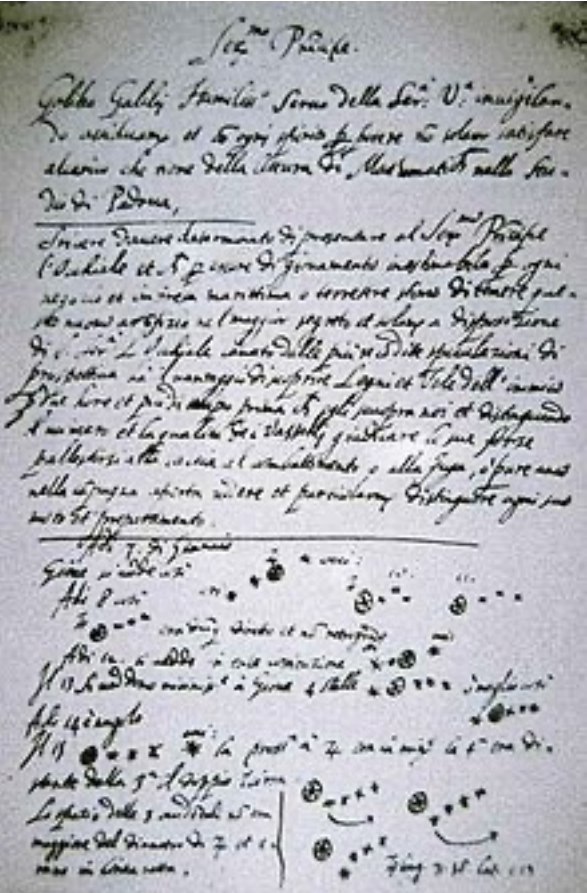 Ser.mo Principe.
Galileo Galilej Humiliss.o Servo della Ser.a V.a invigilan-
do assiduam.e et cō ogni spirito ꝑ potere nō solam satisfare
al carico che tiene della lettura di Mathematica nello Stu-
dio di Padova,
Scrivere d'havere determinato di presentare al Ser.mo Principe
l'Occhiale et ꝑ essere di giovamento inestimabile ꝑ ogni
negocio et impresa marittima o terrestre stimo di tenere que-
sto nuovo artifizio nel maggior segreto et solam a disposizione
di S. Ser.tà L'Occhiale cavato dalle più recondite speculazioni di
prospettiva ha il vantaggio di scoprire Legni et Vele dell'inimico
due hore et più di tempo prima ch'egli scuopra noi et distinguendo
il numero et la qualità de i Vasselli giudicare le sue forze
pallestirsi alla caccia al combattimento o alla fuga, o pure anco
nella campagna aperta vedere et particolarm distinguere ogni suo
moto et preparamento.
Adi 7. di Gennaio
Giove si vede così
Adi 8 così
era dirò diretto et nō retrogrado
Adi 12. si vedde in tale costituzione
Il 13 si veddono à Giove 4 stelle meglio così
Adi 14 è nugolo
Il 15 la pross.a à ♃ era la min.e la 4.a era di-
stante dalla 3.a il doppio
Lo spazio delle 3 occidentali nō era
maggiore del diametro di ♃ et e-
rano in linea retta.